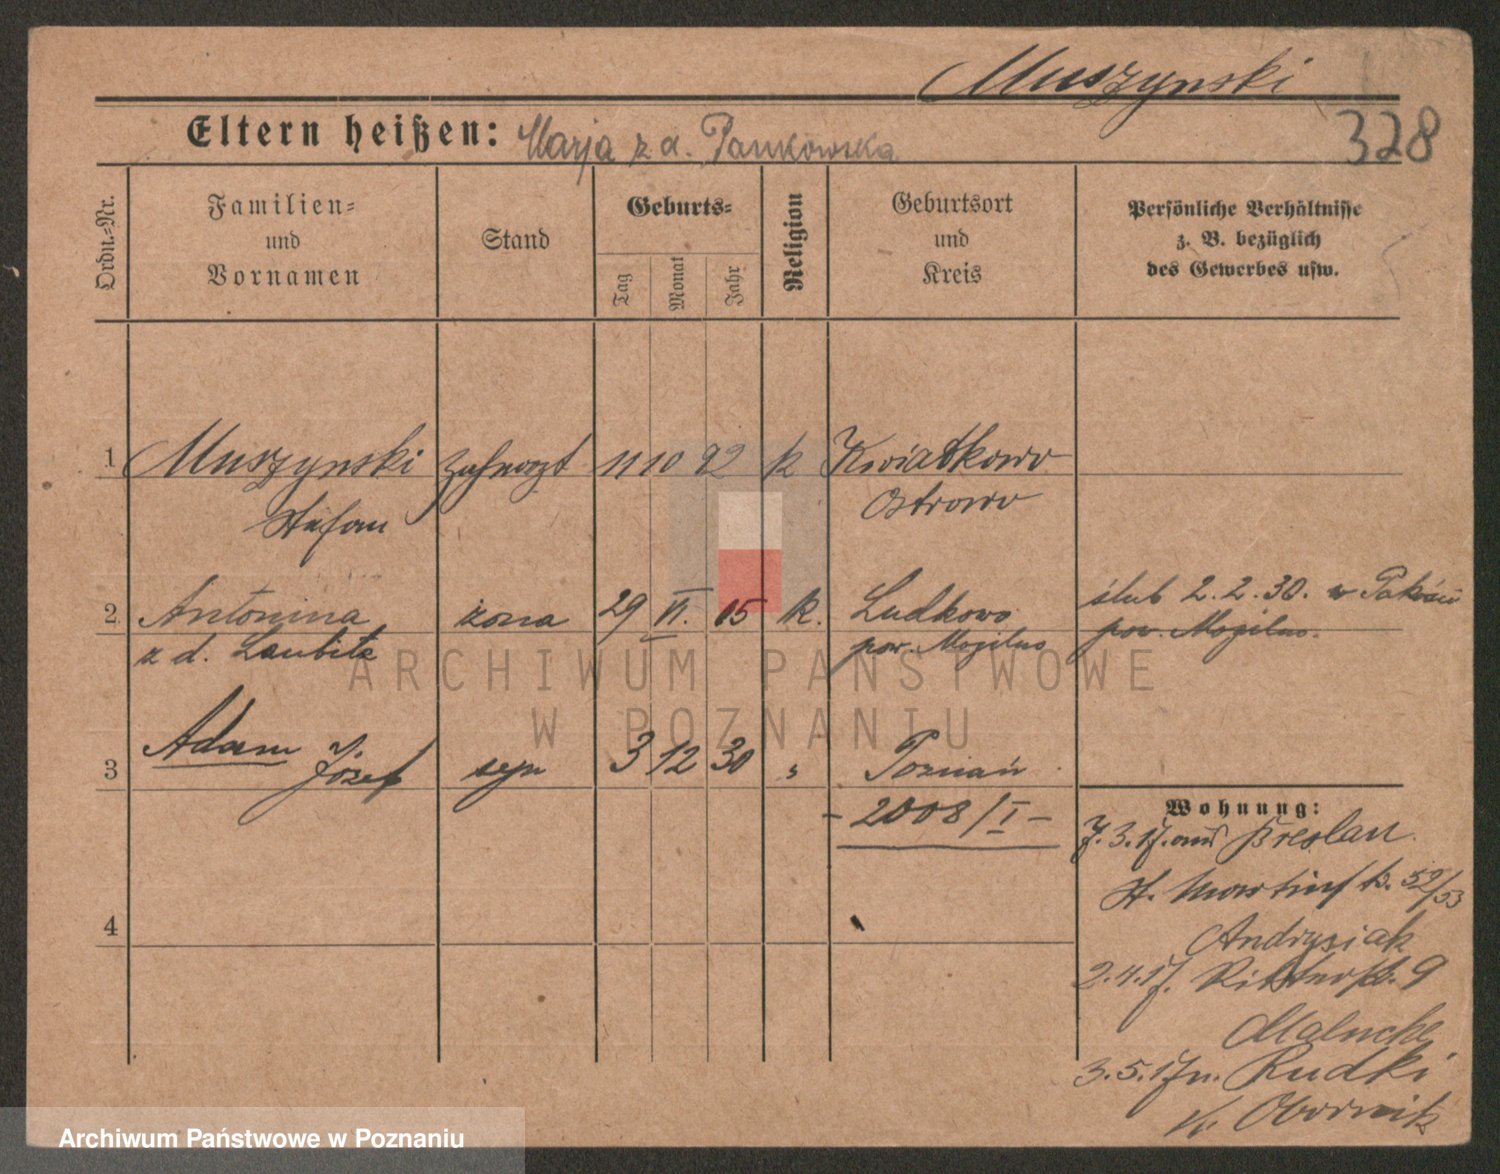 Muszynski
328
Eltern heißen: Marja z d. Pankowska
Ordn.-Nr.
Familien-
und
Vornamen
Stand
Geburts-
Tag
Monat
Jahr
Religion
Geburtsort
und
Kreis
Persönliche Verhältnisse
z. B. bezüglich
des Gewerbes usw.
1 Muszynski Zahnarzt 11 10 92 k Kwiatkowo
Stefan Ostrowo
2 Antonina żona 29 VI. 15 k. Ludkowo ślub 2.2.30. w Pakości
z d. Laubitz pow. Mogilno pow. Mogilno.
3 Adam Józef syn 3 12 30 " Poznań
- 2008/I -
Wohnung:
7.3.17. aus Breslau
St. Martinstr. 52/53
Andrysiak
2.4.17. 9
3.5.17 n. Rudki
Kr. Obornik
4
ARCHIWUM PAŃSTWOWE
W POZNANIU
Archiwum Państwowe w Poznaniu